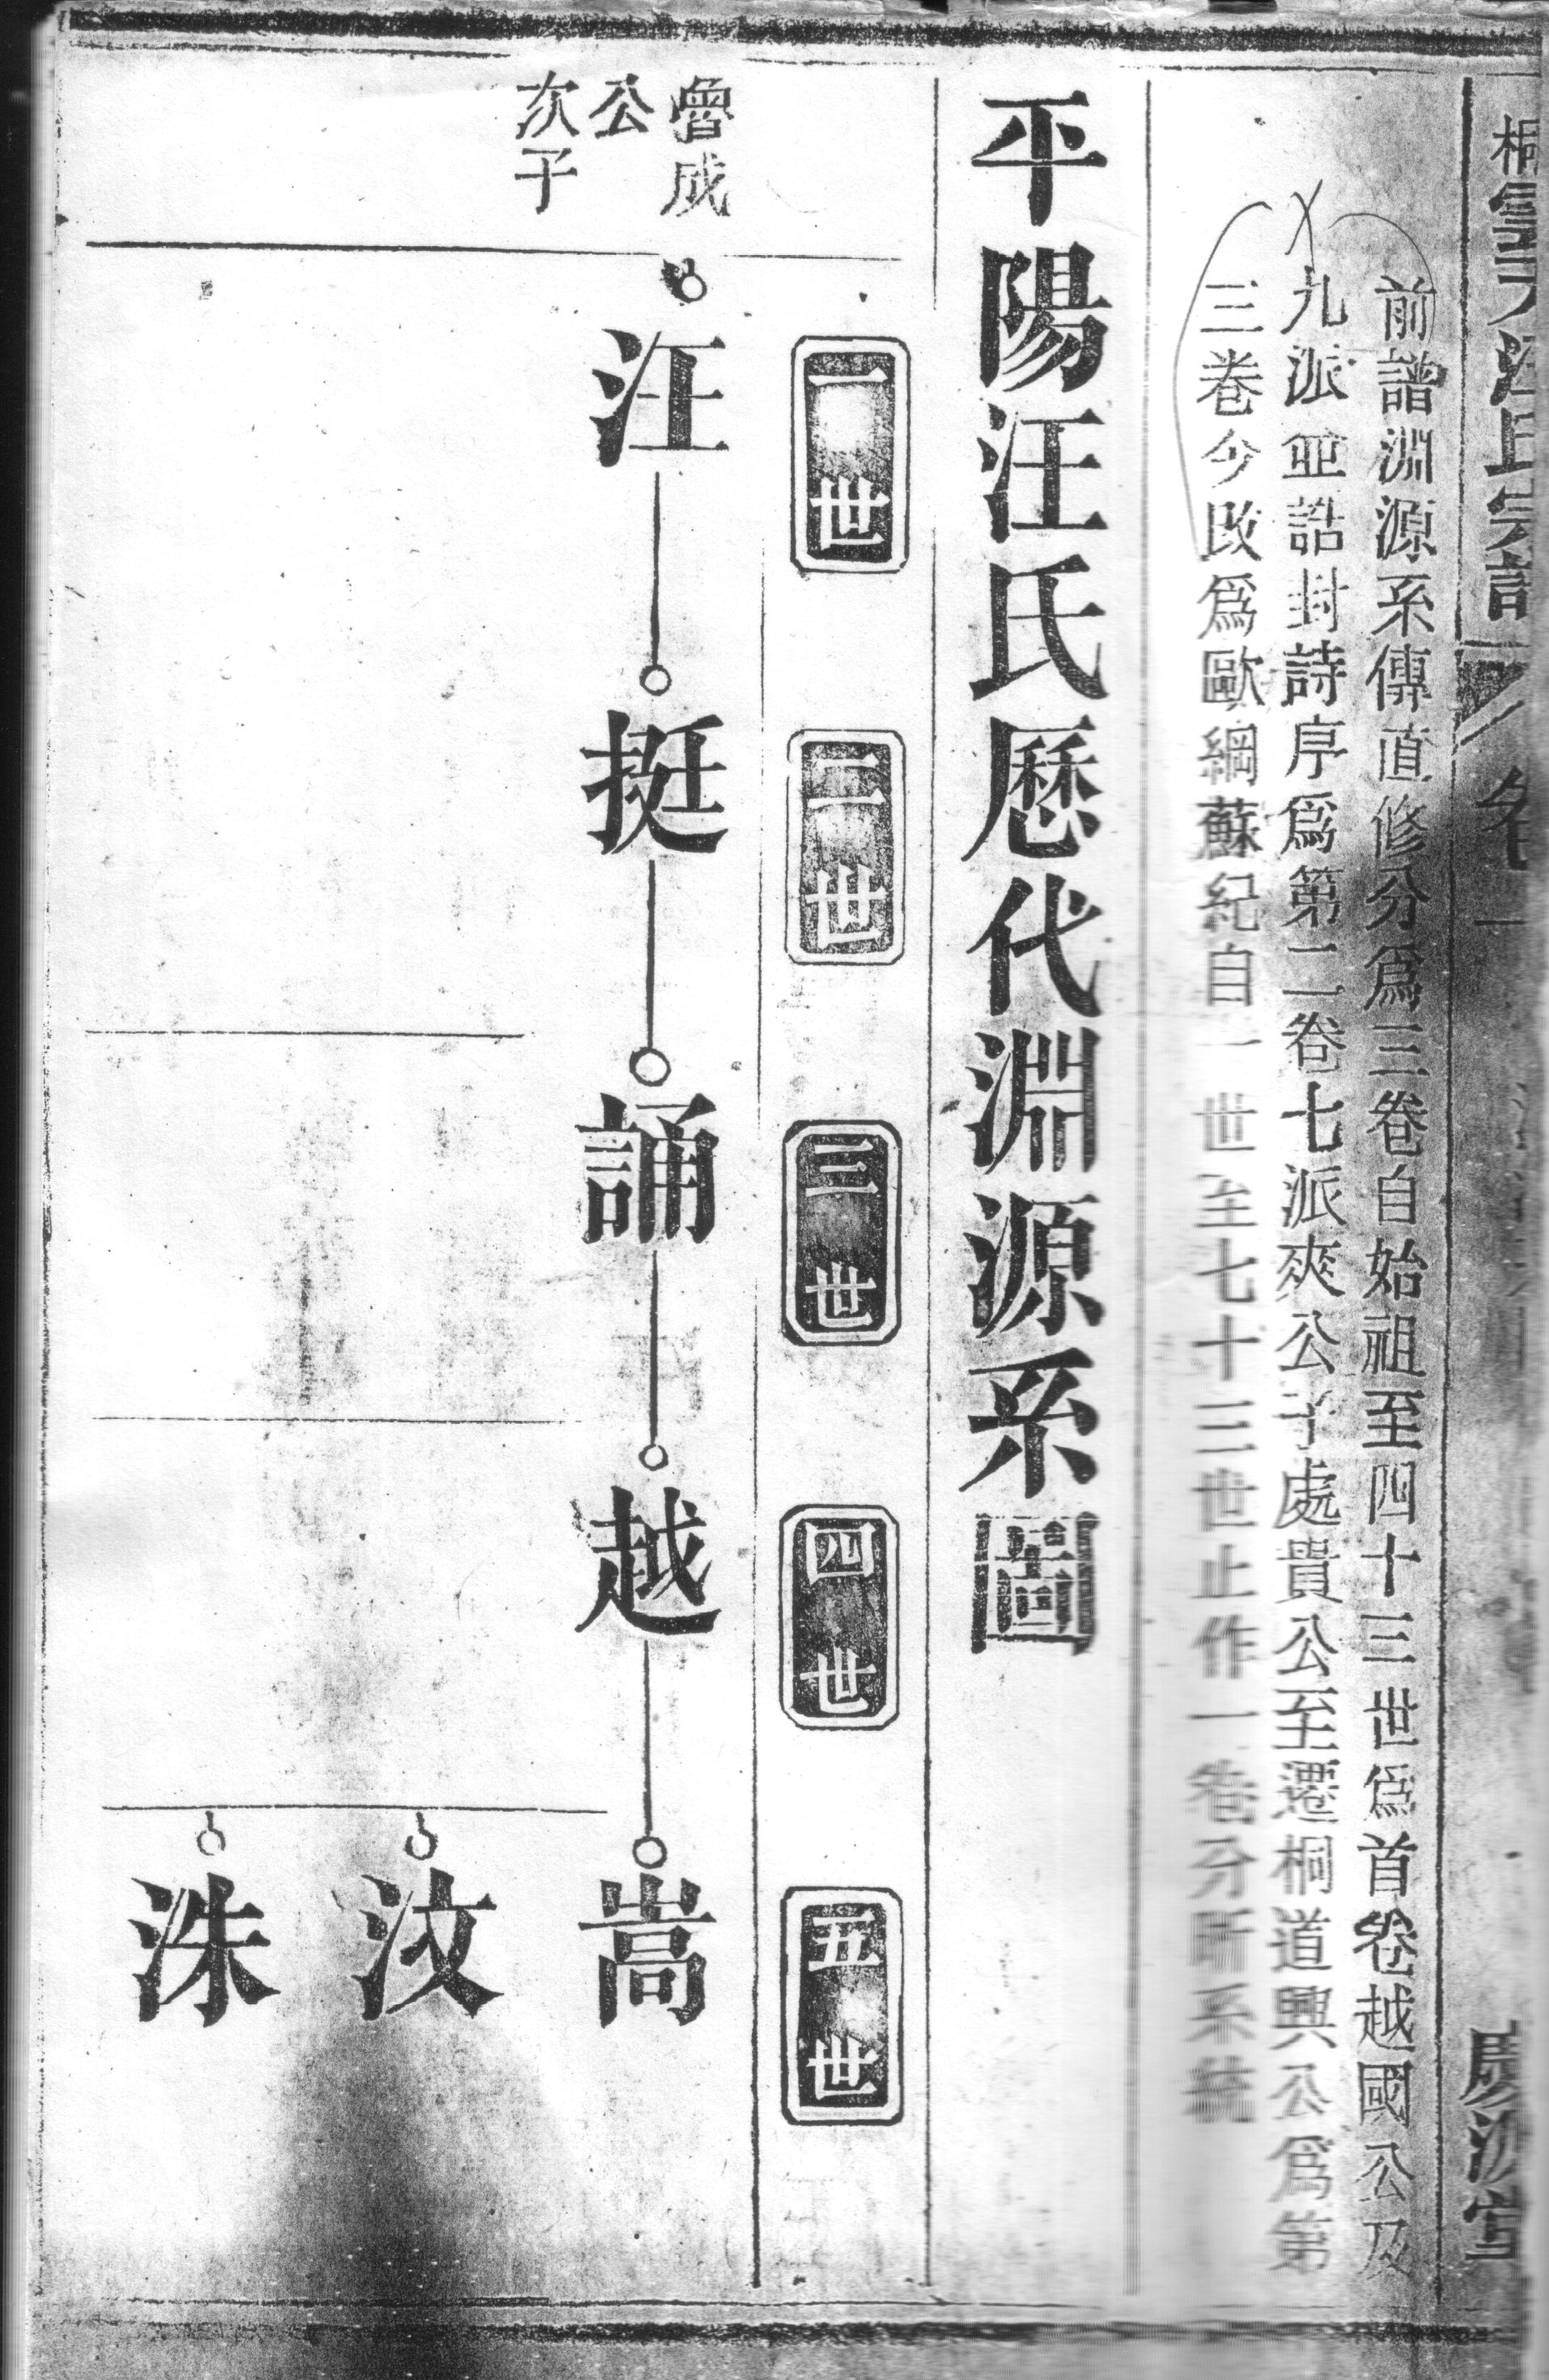 前譜淵源系傳直修分爲三卷自始祖至四十三世爲首卷越國公及
九派並誥封詩序爲第二卷七派爽公子處貴公至遷桐道興公爲第
三卷今改爲歐綱蘇紀自一世至七十三世止作一卷分晰系統
平陽汪氏歷代淵源系圖
一世
二世
三世
四世
五世
魯成
公
次子
汪
挺
誦
越
嵩
汶
洙